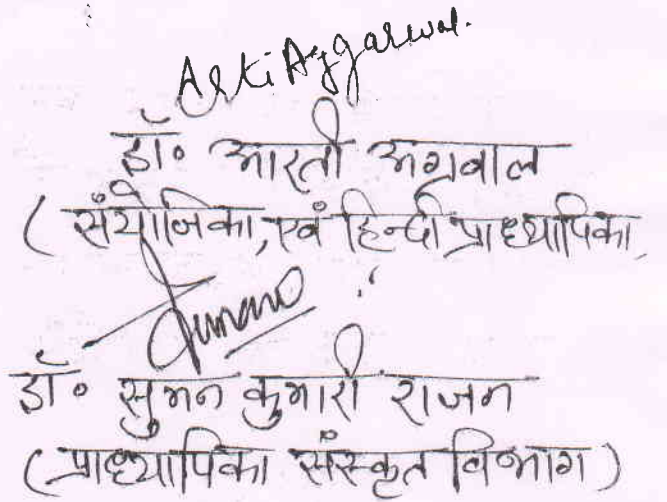 Arti Aggarwal.
डॉ॰ आरती अग्रवाल
( संयोजिका, एवं हिन्दी प्राध्यापिका,
Suman
डॉ॰ सुमन कुमारी राजन
( प्राध्यापिका संस्कृत विभाग )